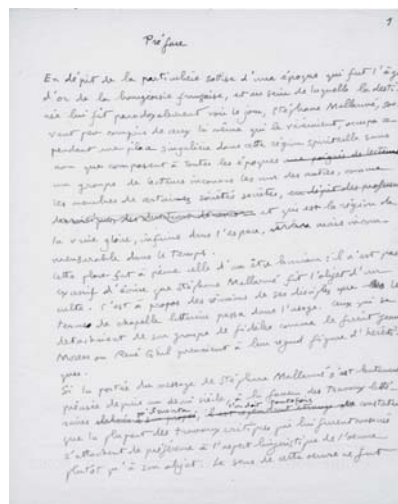 1
Préface
En dépit de la particulière sottise d'une époque qui fut l'âge
d'or de la bourgeoisie française, et au sein de laquelle la desti-
née lui fit paradoxalement voir le jour, Stéphane Mallarmé, sou-
vent peu compris de ceux là même qui le vénéraient, occupa ce-
pendant une place singulière dans cette région spirituelle sans
nom que composent à toutes les époques
un groupe de lecteurs inconnus les uns des autres, comme
les membres de certaines sociétés secrètes,
et qui est la région de
la vraie gloire, infime dans l'espace, mais incom-
mensurable dans le temps.
Cette place fut à peine celle d'un être humain : il n'est pas
excessif d'écrire que Stéphane Mallarmé fût l'objet d'un
culte. C'est à propos des réunions de ses disciples que le
terme de chapelle littéraire passa dans l'usage. Ceux qui se
détachaient de son groupe de fidèles comme le firent
Moréas ou René Ghil prenaient à leur regard figure d'héréti-
ques.
Si la portée du message de Stéphane Mallarmé s'est lentement
précisée depuis un demi siècle à la faveur des travaux litté-
raires
constater
que la plupart des travaux critiques qui lui furent consacrés
s'attachent de préférence à l'aspect linguistique de l'oeuvre
plutôt qu'à son objet. Le sens de cette oeuvre ne fut